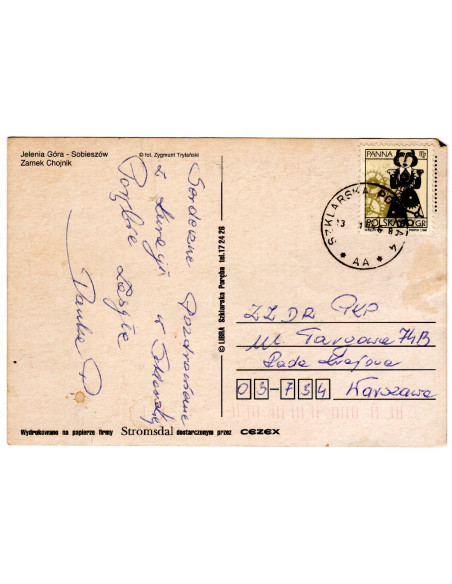 Jelenia Góra - Sobieszów
Zamek Chojnik
© fot. Zygmunt Trylański
Serdeczne Pozdrowienia
z
w Szklarskiej
Porębie
Danka P
© LIBRA Szklarska Poręba tel.17 24 26
PANNA
POLSKA GR
SZKLARSKA PORĘBA 4
AA
ZZ DR PKP
ul. Targowa 74B
Rada Krajowa
03-734 Warszawa
Wydrukowano na papierze firmy Stromsdal dostarczonym przez CEZEX